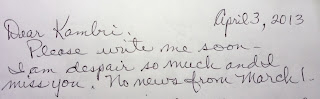 April 3, 2013
Dear Kambri.
Please write me soon -
I am despair so much and I
miss you. No news from March!